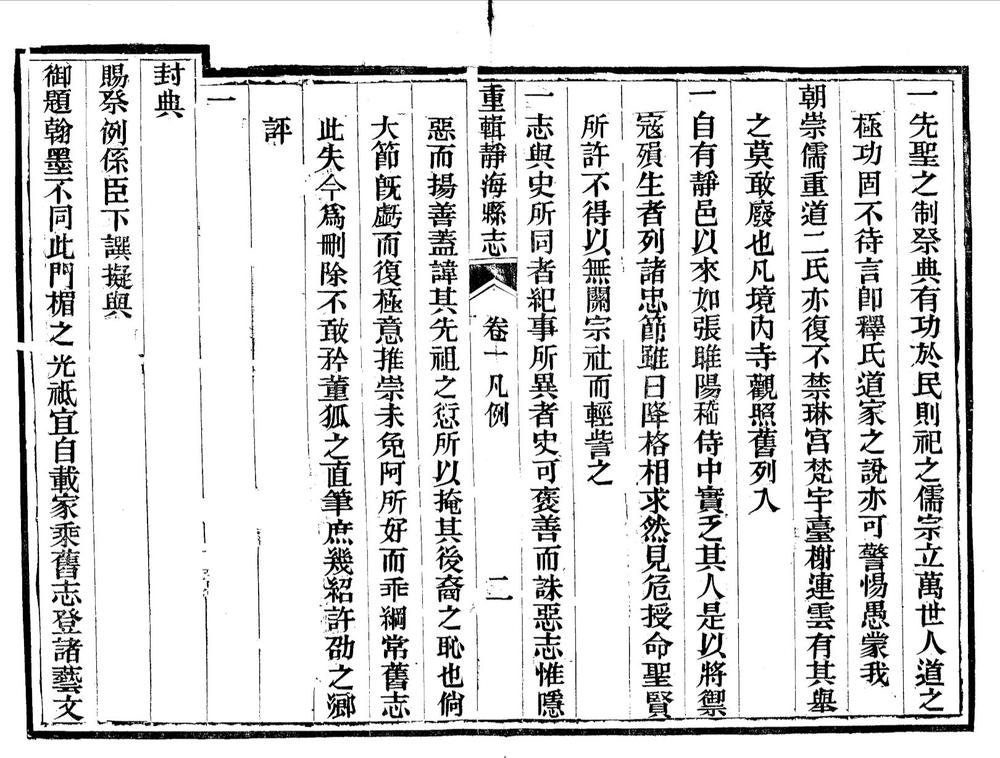 一先聖之制祭典有功於民則祀之儒宗立萬世人道之
極功固不待言卽釋氏道家之說亦可警惕愚蒙我
朝崇儒重道二氏亦復不禁琳宮梵宇臺榭連雲有其舉
之莫敢廢也凡境內寺觀照舊列入
一自有靜邑以來如張睢陽嵇侍中實乏其人是以將禦
寇殞生者列諸忠節雖曰降格相求然見危授命聖賢
所許不得以無關宗社而輕訾之
一志與史所同者紀事所異者史可褒善而誅惡志惟隱
重輯靜海縣志 卷一 凡例 二
惡而揚善蓋諱其先祖之愆所以掩其後裔之恥也倘
大節旣虧而復極意推崇未免阿所好而乖綱常舊志
此失今爲刪除不敢矜董狐之直筆庶幾紹許劭之鄉
評
一
封典
賜祭例係臣下譔擬與
御題翰墨不同此門楣之光祗宜自載家乘舊志登諸藝文